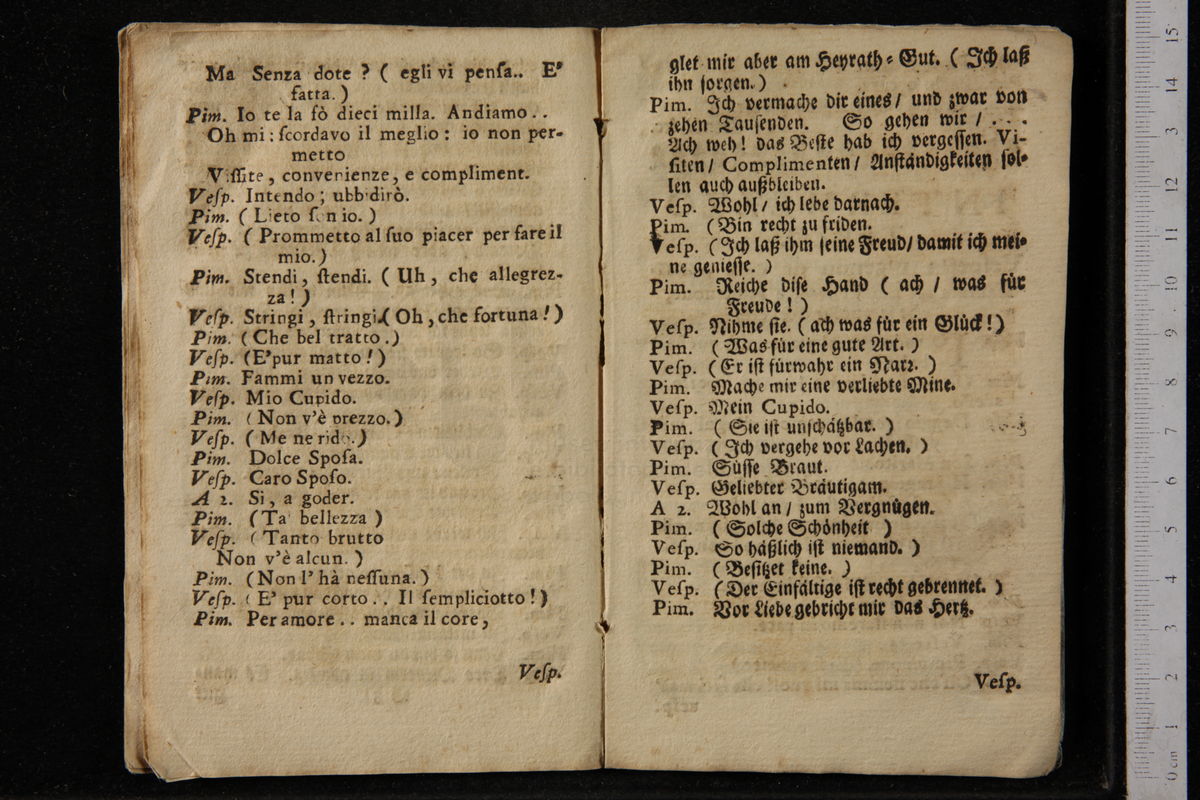 Ma Senza dote ? ( egli vi penſa.. E'
fatta. )
Pim. Io te la fò dieci milla. Andiamo . .
Oh mi : ſcordavo il meglio : io non per-
metto
Viſſite , convenienze, e compliment.
Veſp. Intendo ; ubbidirò.
Pim. ( Lieto ſon io. )
Veſp. ( Prommetto al ſuo piacer per fare il
mio. )
Pim. Stendi , ſtendi. ( Uh , che allegrez-
za ! )
Veſp. Stringi , ſtringi. ( Oh , che fortuna ! )
Pim. ( Che bel tratto . )
Veſp. (E'pur matto ! )
Pim. Fammi un vezzo.
Veſp. Mio Cupido.
Pim. ( Non v'è prezzo. )
Veſp. ( Me ne rido. )
Pim. Dolce Spoſa.
Veſp. Caro Spoſo.
A 2. Si , a goder.
Pim. ( Ta' bellezza )
Veſp. ( Tanto brutto
Non v'è alcun. )
Pim. ( Non l' hà neſſuna. )
Veſp. ( E' pur corto . . Il ſempliciotto ! )
Pim. Per amore . . manca il core ,
Veſp.
glet mir aber am Heyrath⸗Gut. ( Ich laß
ihn ſorgen. )
Pim. Ich vermache dir eines / und zwar von
zehen Tauſenden. So gehen wir / . . .
Ach weh ! das Beſte hab ich vergeſſen. Vi-
ſiten / Complimenten / Anſtändigkeiten ſol-
len auch außbleiben.
Veſp. Wohl / ich lebe darnach.
Pim. ( Bin recht zu friden.
Veſp. ( Ich laß ihm ſeine Freud / damit ich mei-
ne genieſſe. )
Pim. Reiche diſe Hand ( ach / was für
Freude ! )
Veſp. Nihme ſie. ( ach was für ein Glück ! )
Pim. ( Was für eine gute Art. )
Veſp. ( Er iſt fürwahr ein Narr. )
Pim. Mache mir eine verliebte Mine.
Veſp. Mein Cupido.
Pim. ( Sie iſt unſchätzbar. )
Veſp. ( Ich vergehe vor Lachen. )
Pim. Süſſe Braut.
Veſp. Geliebter Bräutigam.
A 2. Wohl an / zum Vergnügen.
Pim. ( Solche Schönheit )
Veſp. So häßlich iſt niemand. )
Pim. ( Beſitzet keine. )
Veſp. ( Der Einfältige iſt recht gebrennet. )
Pim. Vor Liebe gebricht mir das Hertz.
Veſp.